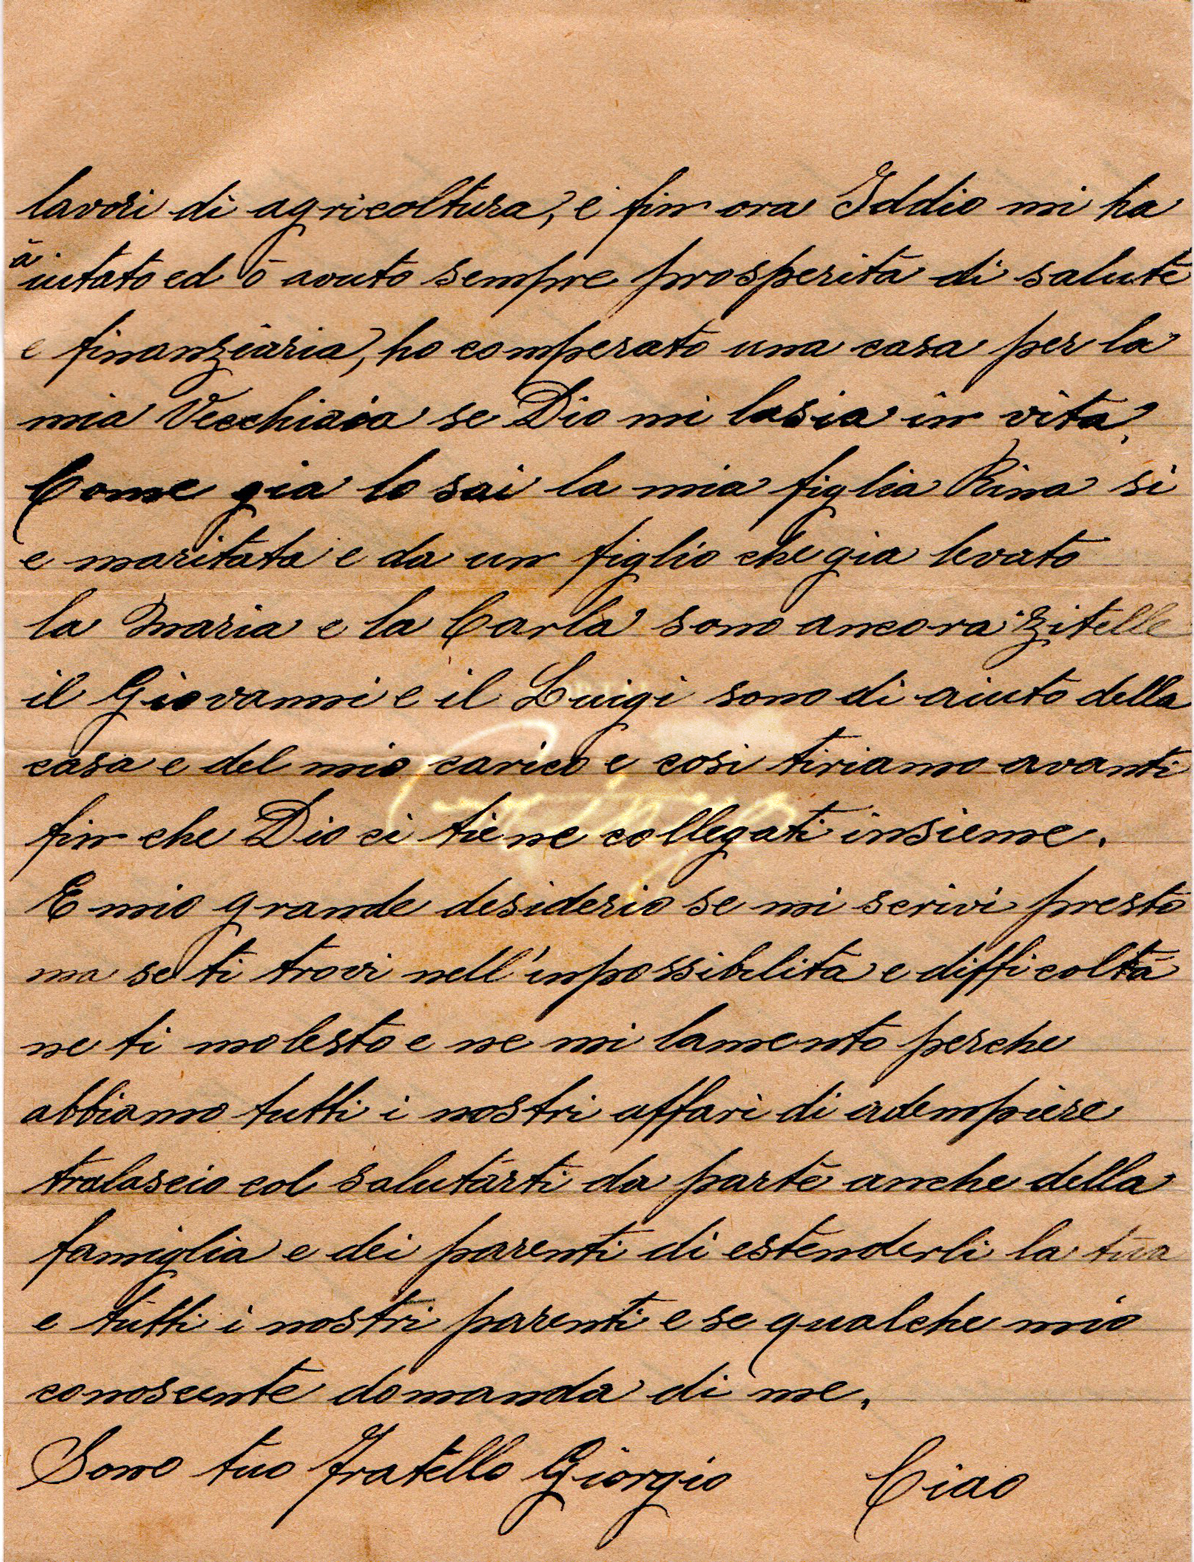 lavori di agricoltura, e fin ora Iddio mi ha
aiutato ed ò avuto sempre prosperità di salute
e finanziaria, ho comperato una casa per la
mia Vecchiaia se Dio mi lasia in vita,
Come gia lo sai la mia figlia Rina si
e maritata e da un figlio che gia levato
la Maria e la Carla sono ancora zitelle
il Giovanni e il Luigi sono di aiuto della
casa e del mio carico e cosi tiriamo avanti
fin che Dio ci tiene collegati insieme.
E mio grande desiderio se mi scrivi presto
ma se ti trovi nell'inpossibilita e difficolta
ne ti molesto e ne mi lamento perche
abbiamo tutti i nostri affari di adempiere
tralascio col salutarti da parte anche della
famiglia e dei parenti di estenderli la tua
e tutti i nostri parenti e se qualche mio
conoscente domanda di me.
Sono tuo Fratello Giorgio Ciao